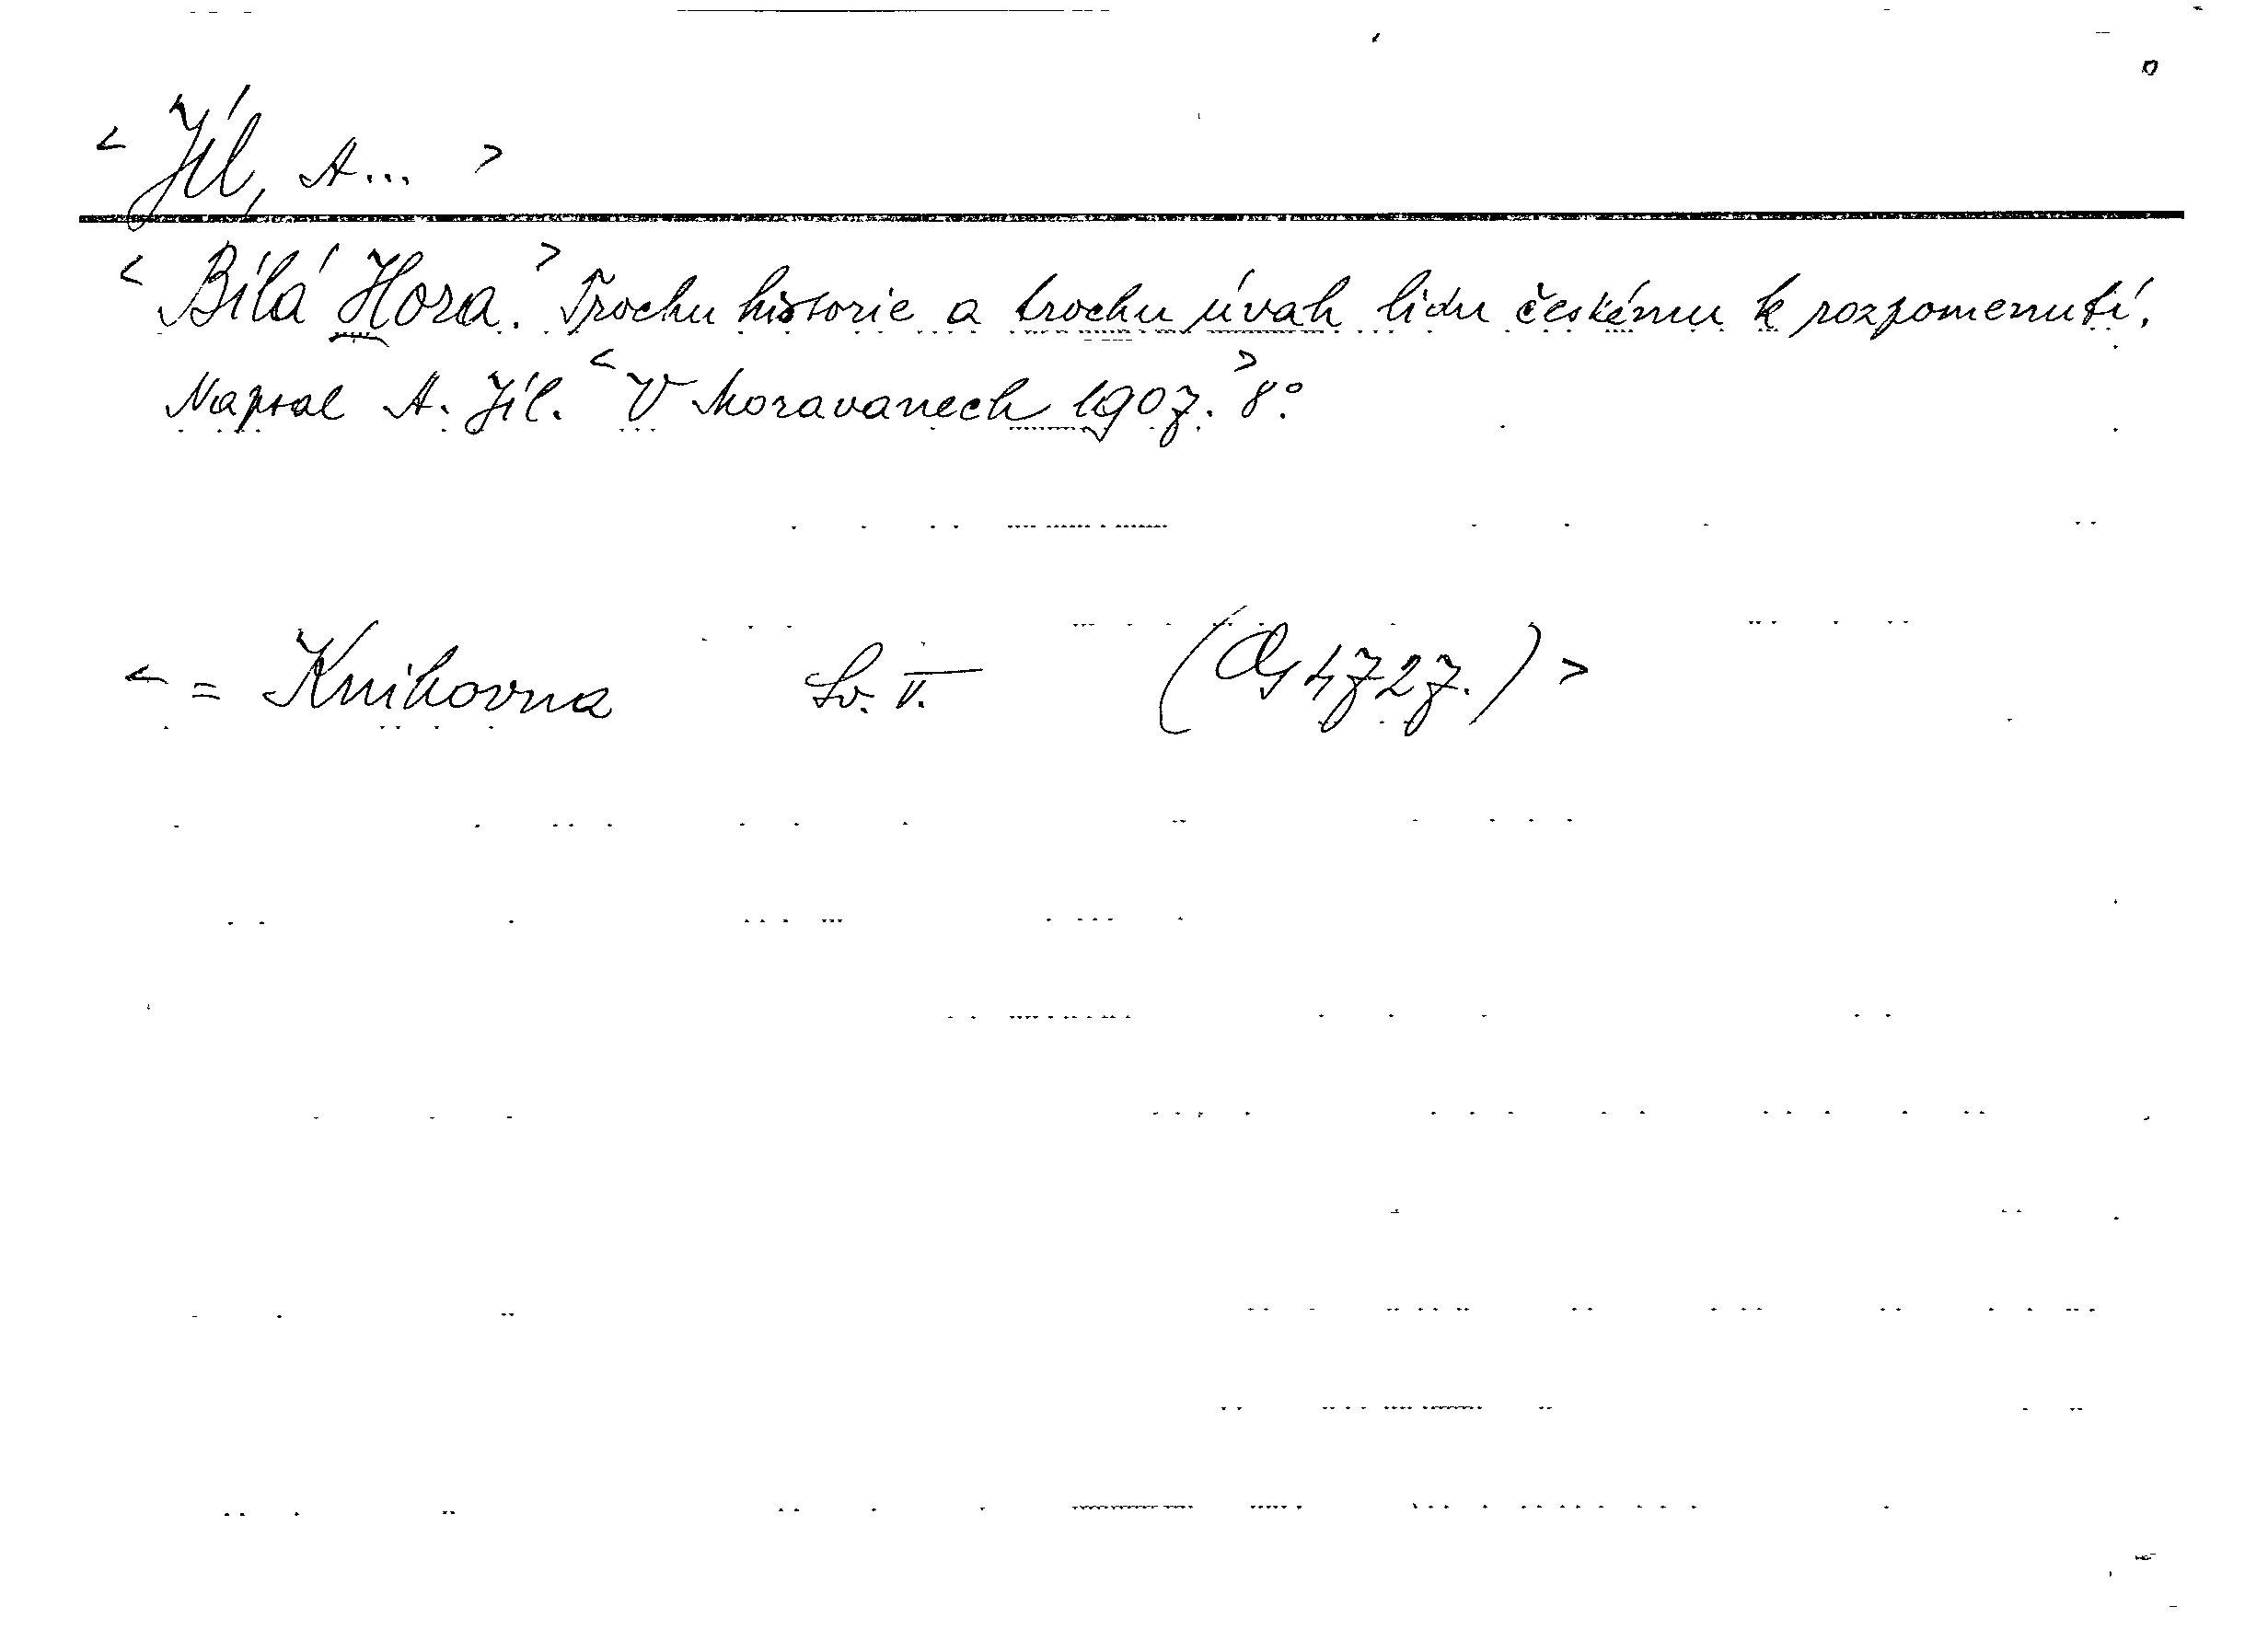 < Jíl, A... >
< Bílá Hora. > Trochu historie a trochu úvah lidu českému k rozpomenutí.
Napsal A. Jíl. < V Moravanech 1907. > 8°
< = Knihovna Sv. V. ( 4727.) >